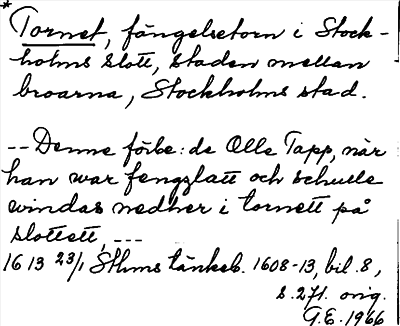 * Tornet, fängelsetorn i Stock-
holms slott, staden mellan
broarna, Stockholms stad.
-- Denne förbe:de Olle Tapp, när
han war fengzlatt och schulle
windas nedher i tornett på
slottett, ---
1613 23/1 Sthms tänkeb. 1608-13, bil. 8,
s. 271. orig.
G.E. 1966